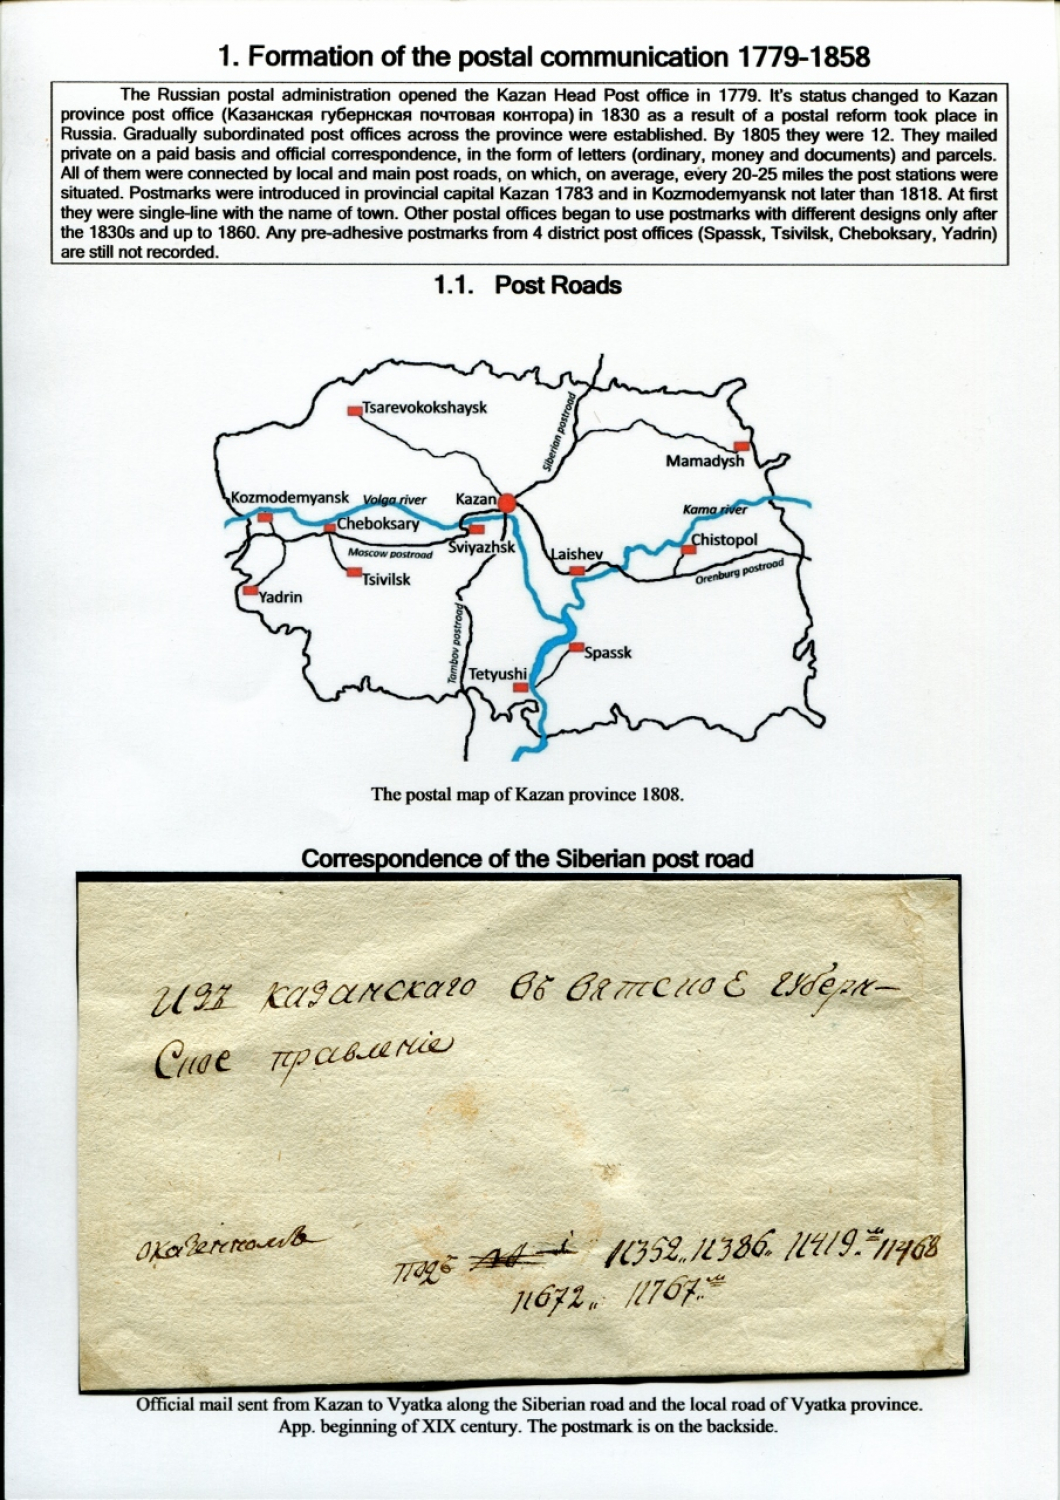 1. Formation of the postal communication 1779-1858
The Russian postal administration opened the Kazan Head Post office in 1779. It's status changed to Kazan
province post office (Казанская губернская почтовая контора) in 1830 as a result of a postal reform took place in
Russia. Gradually subordinated post offices across the province were established. By 1805 they were 12. They mailed
private on a paid basis and official correspondence, in the form of letters (ordinary, money and documents) and parcels.
All of them were connected by local and main post roads, on which, on average, every 20-25 miles the post stations were
situated. Postmarks were introduced in provincial capital Kazan 1783 and in Kozmodemyansk not later than 1818. At first
they were single-line with the name of town. Other postal offices began to use postmarks with different designs only after
the 1830s and up to 1860. Any pre-adhesive postmarks from 4 district post offices (Spassk, Tsivilsk, Cheboksary, Yadrin)
are still not recorded.
1.1. Post Roads
Tsarevokokshaysk
Siberian postroad
Mamadysh
Kozmodemyansk
Volga river
Kazan
Kama river
Cheboksary
Moscow postroad
Sviyazhsk
Laishev
Chistopol
Orenburg postroad
Tsivilsk
Yadrin
Tambov postroad
Spassk
Tetyushi
The postal map of Kazan province 1808.
Correspondence of the Siberian post road
Изъ казанскаго въ вятское губерн-
ское правление
подъ 11352„ 11386„ 11419„ 11468
11672„ 11767„
Official mail sent from Kazan to Vyatka along the Siberian road and the local road of Vyatka province.
App. beginning of XIX century. The postmark is on the backside.